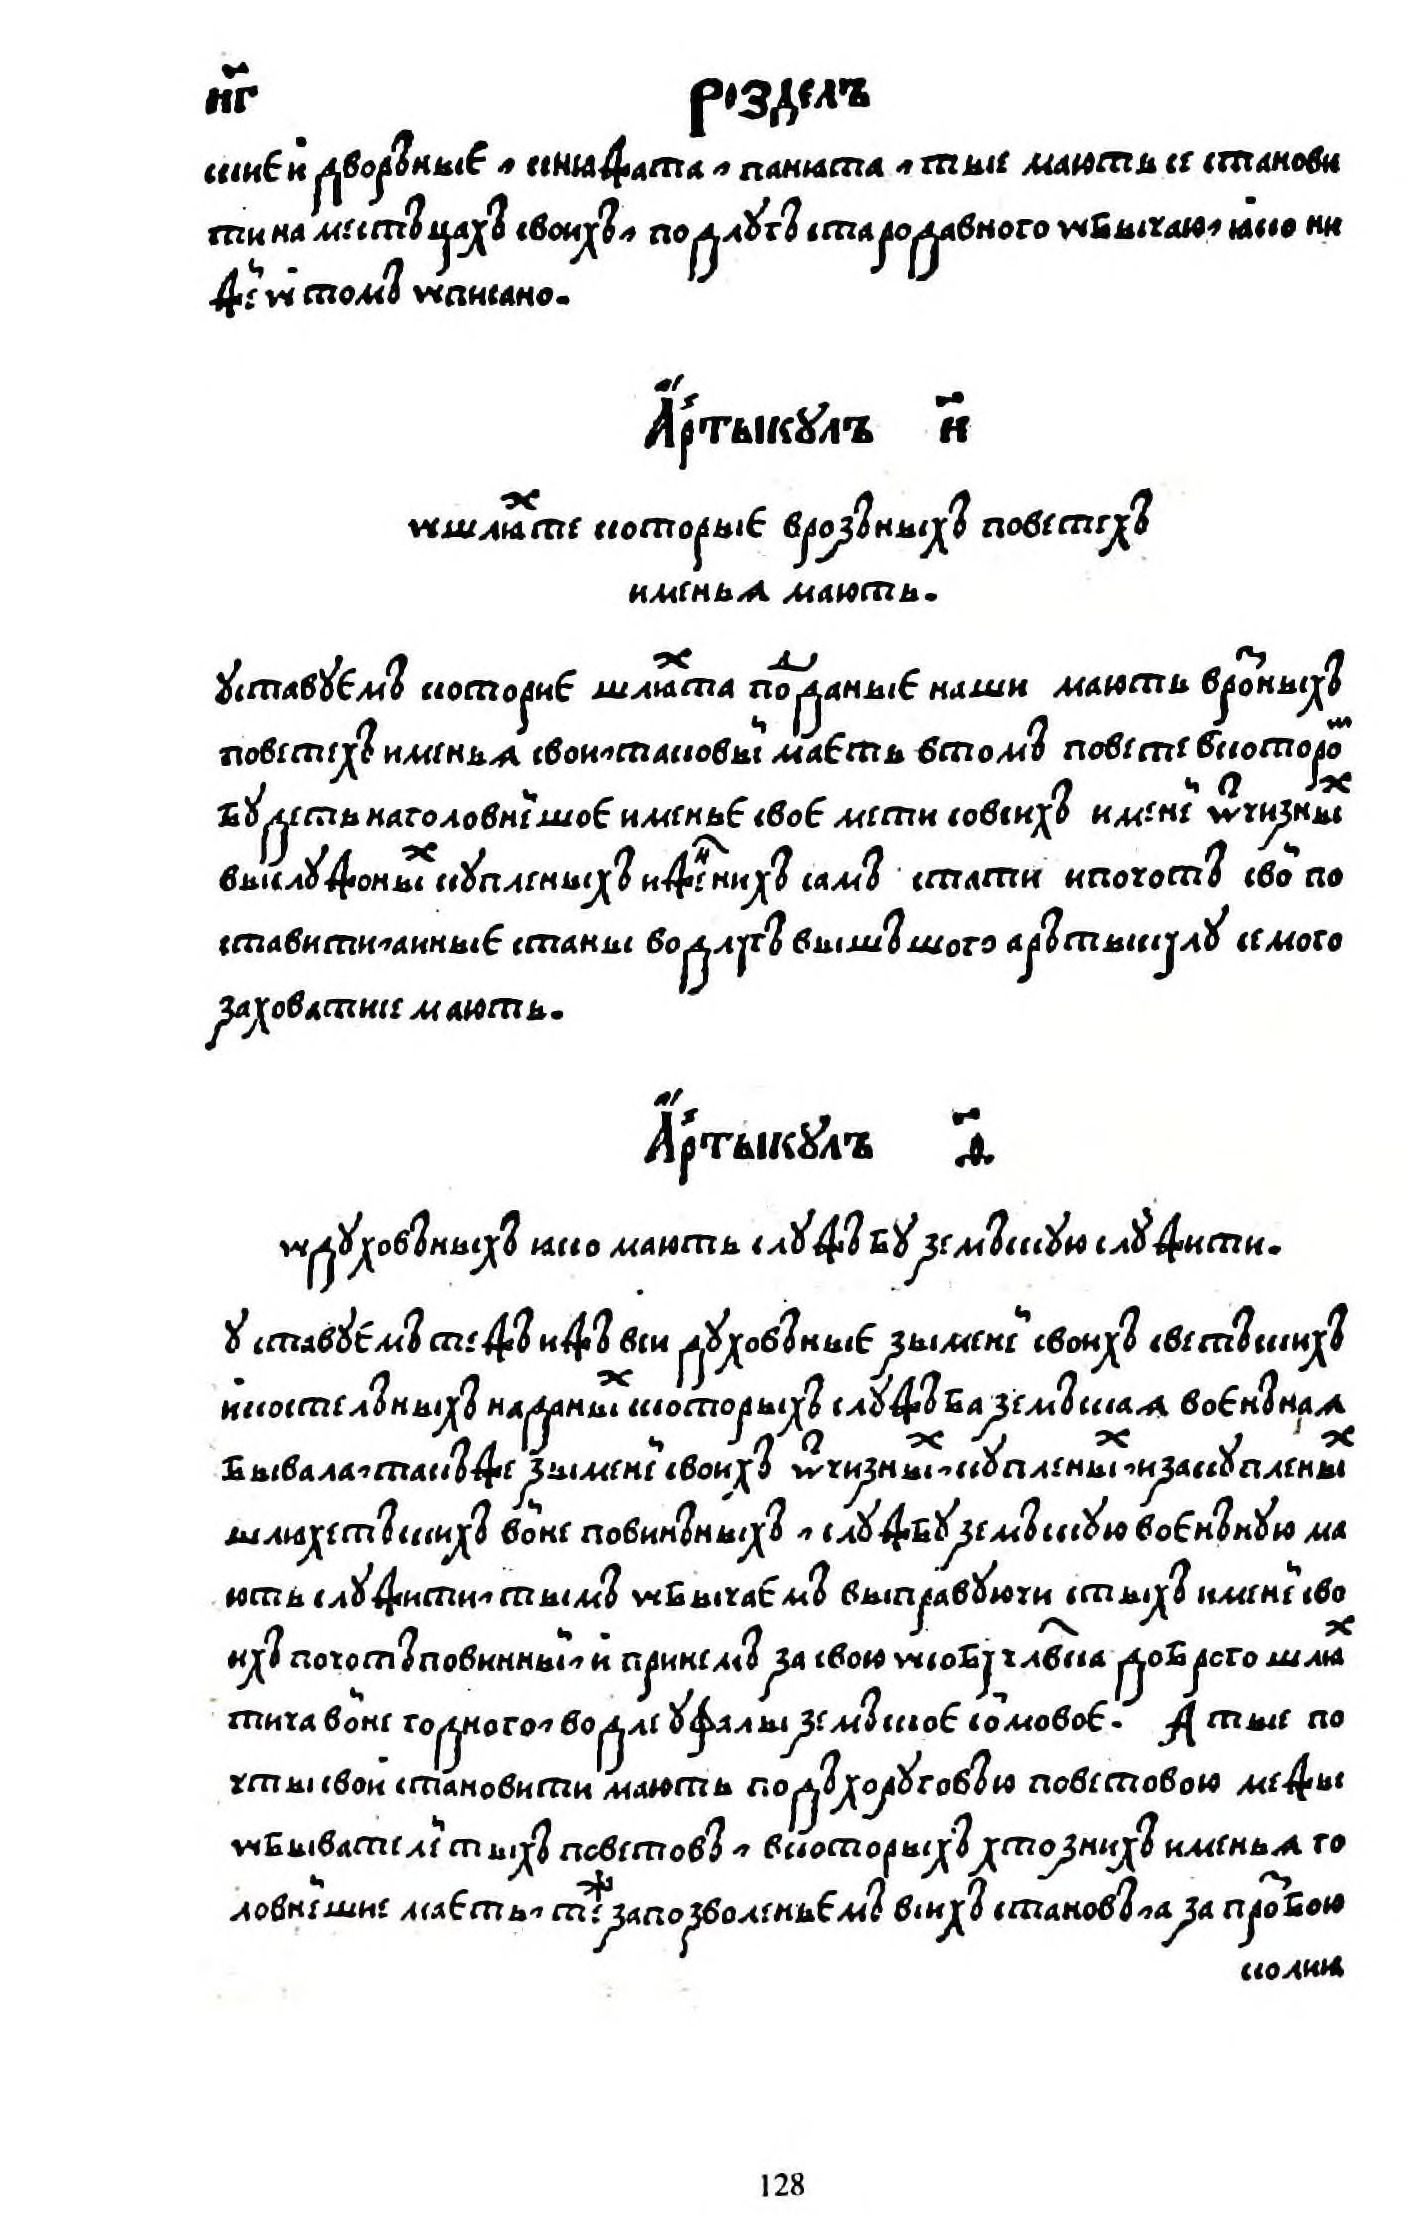 н҃г роздєлъ
скиє и дворъныє, кнѧжата, панѧта, тыє мають сє станови
ти на мєстъцахъ своихъ, подлугъ стародавного ѡбычаю, ꙗко ни
жєй ѡ томъ ѡписано.
Артыкулъ и҃
ѡ шлѧхтє которыє в розъныхъ повєтєхъ
имєньѧ мають.
Уставуємъ которыє шлѧхта подданыє наши мають в розныхъ
повєтєхъ имєньѧ свои, таковый маєть в томъ повєтє в котором
будєть наголовнѣйшоє имєньє своє мєти со всихъ имєнєй ѡтчизных
выслужоных куплєныхъ и жєниныхъ самъ стати и почотъ свой по
ставити, а иныє станы водлугъ вышъшого арътыкулу сємого
заховати сє мають.
Артыкулъ ѳ҃
ѡ духовъныхъ ꙗко мають служъбу зємъскую служити.
Уставуємъ тєжъ ижъ вси духовъныє з ымєнєй своихъ свєтъскихъ
и костєлъныхъ наданых с которыхъ служъба зємъскаѧ воєнънаѧ
бывала, такъжє з ымєнєй своихъ ѡтчизных, куплєных, и закуплєных
шлѧхєтъскихъ войнє повинъныхъ, служъбу зємъскую воєнъную ма
ють служити, тымъ ѡбычаємъ выправуючи с тыхъ имєнєй сво
ихъ почотъ повинный, и принємъ за свою ѡсобу чловєка доброго шлѧх
тича войнє годного, водлє уфалы зємъскоє соймовоє. А тыє по
чты свои становити мають подъ хоруговъю повєтовою мєжы
ѡбыватєлєй тыхъ повєтовъ, в которыхъ хто з нихъ имєньѧ го
ловнєйшиє маєть, тєж за позволєньємъ всихъ становъ, а за прозбою
колиѧ
128